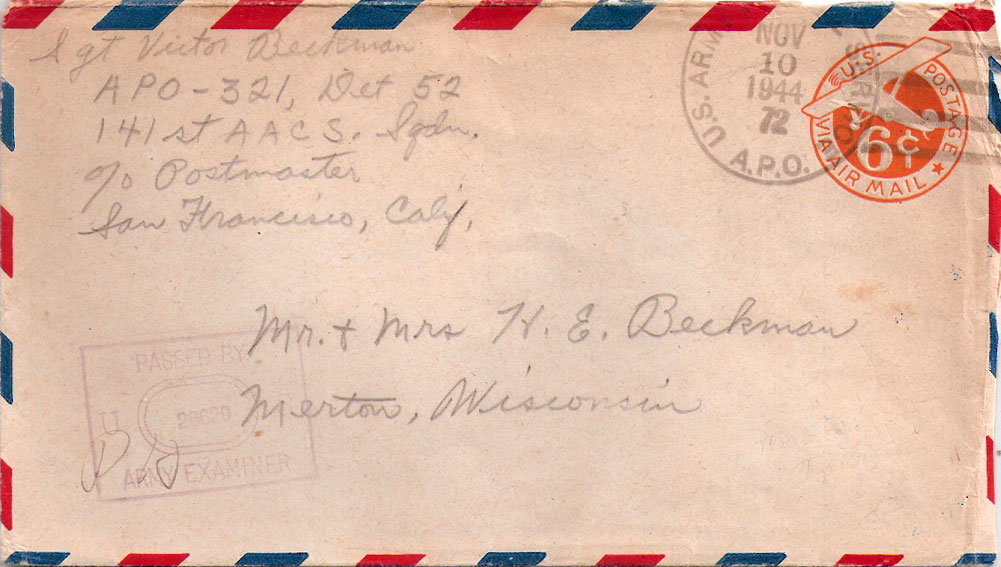 Sgt Victor Beckman
APO-321, Det 52
141st AACS. Sqdn.
c/o Postmaster
San Francisco, Calif.
U.S. ARMY
NOV
10
1944
72
A.P.O.
U.S. POSTAGE
6¢
VIA AIR MAIL
Mr. & Mrs H. E. Beckman
Merton, Wisconsin
PASSED BY
U
ARMY EXAMINER